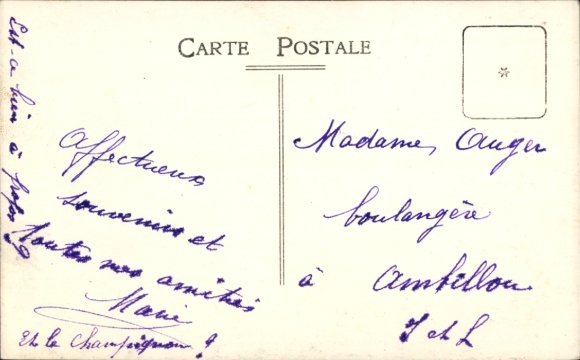 CARTE POSTALE
Est-ce bien à propos ?
Affectueux
souvenirs et
toutes nos amitiés
Marie
Et le champignon ?
Madame Auger
boulangère
à Ambillou
I et L